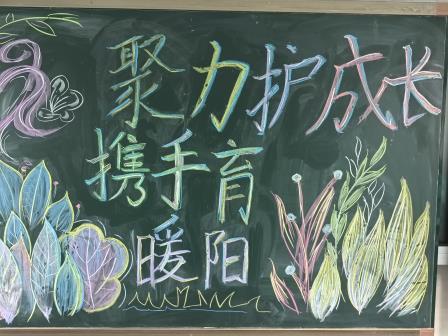 聚力护成长
携手育
暖阳